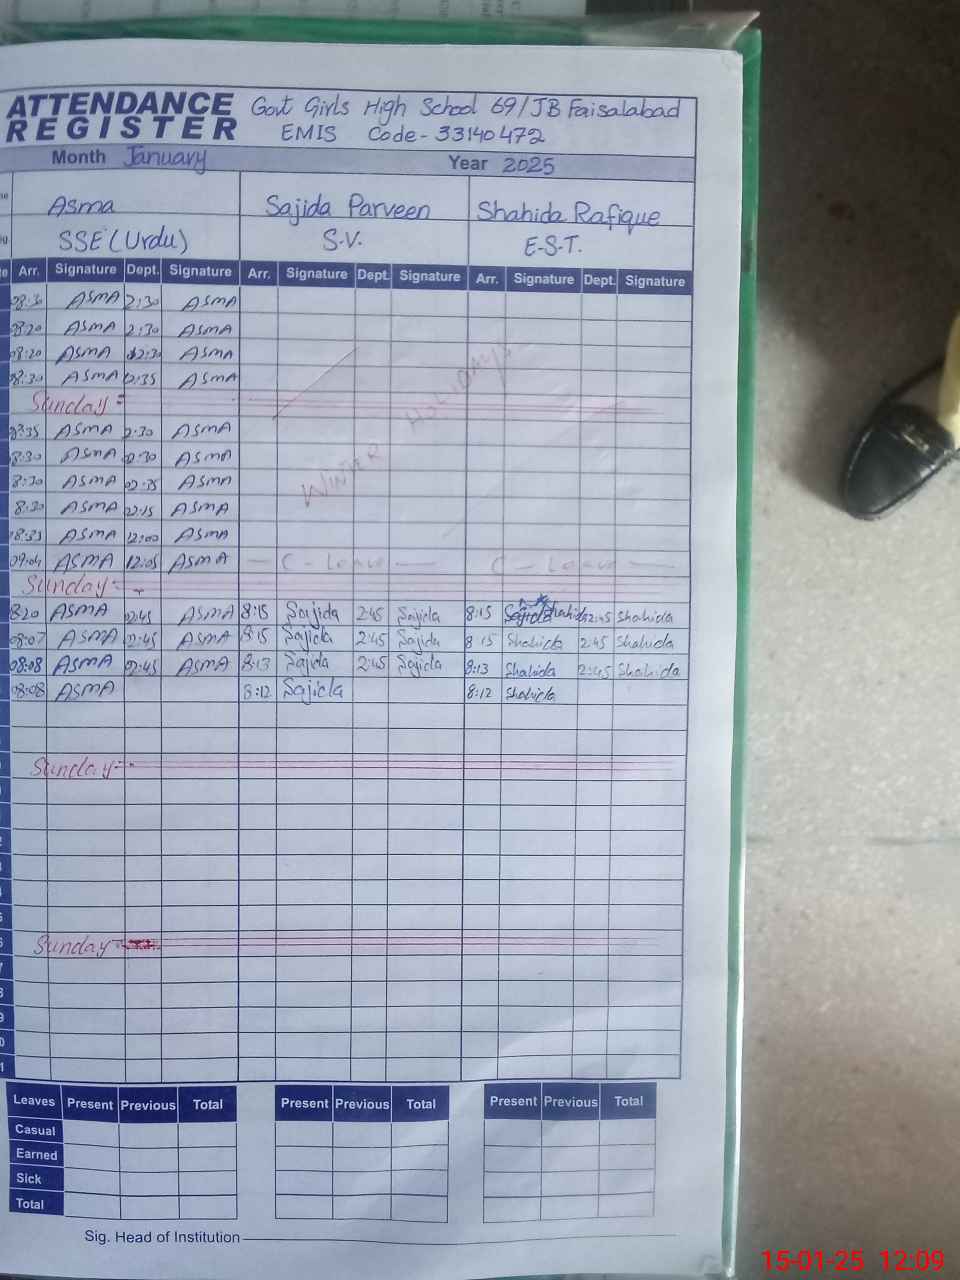 ATTENDANCE REGISTER Govt Girls High School 69/JB Faisalabad
EMIS Code-33140472
Month January Year 2025
Asma Sajida Parveen Shahida Rafique
SSE (Urdu) S.V. E-S-T.
Arr. Signature Dept. Signature Arr. Signature Dept. Signature Arr. Signature Dept. Signature
ASMA 2:30 ASMA
8:20 ASMA 2:30 ASMA
08:20 ASMA ASMA
08:30 ASMA 2:35 ASMA
Sunday
8:35 ASMA 2:30 ASMA
8:30 ASMA 02:30 ASMA
8:30 ASMA 02:35 ASMA
WINTER HOLIDAYS
8:30 ASMA 02:15 ASMA
ASMA 12:00 ASMA
09:04 ASMA 12:05 ASMA — C - Leave — C - Leave —
Sunday
8:20 ASMA 02:45 ASMA 8:15 Sajida 2:45 Sajida 8:15 Shahida 2:45 Shahida
08:07 ASMA 02:45 ASMA 8:15 Sajida 2:45 Sajida 8:15 Shahida 2:45 Shahida
08:08 ASMA 02:45 ASMA 8:13 Sajida 2:45 Sajida 8:13 Shahida 2:45 Shahida
08:08 ASMA 8:12 Sajida 8:12 Shahida
Sunday
Sunday
Leaves Present Previous Total Present Previous Total Present Previous Total
Casual
Earned
Sick
Total
Sig. Head of Institution
15-01-25 12:09